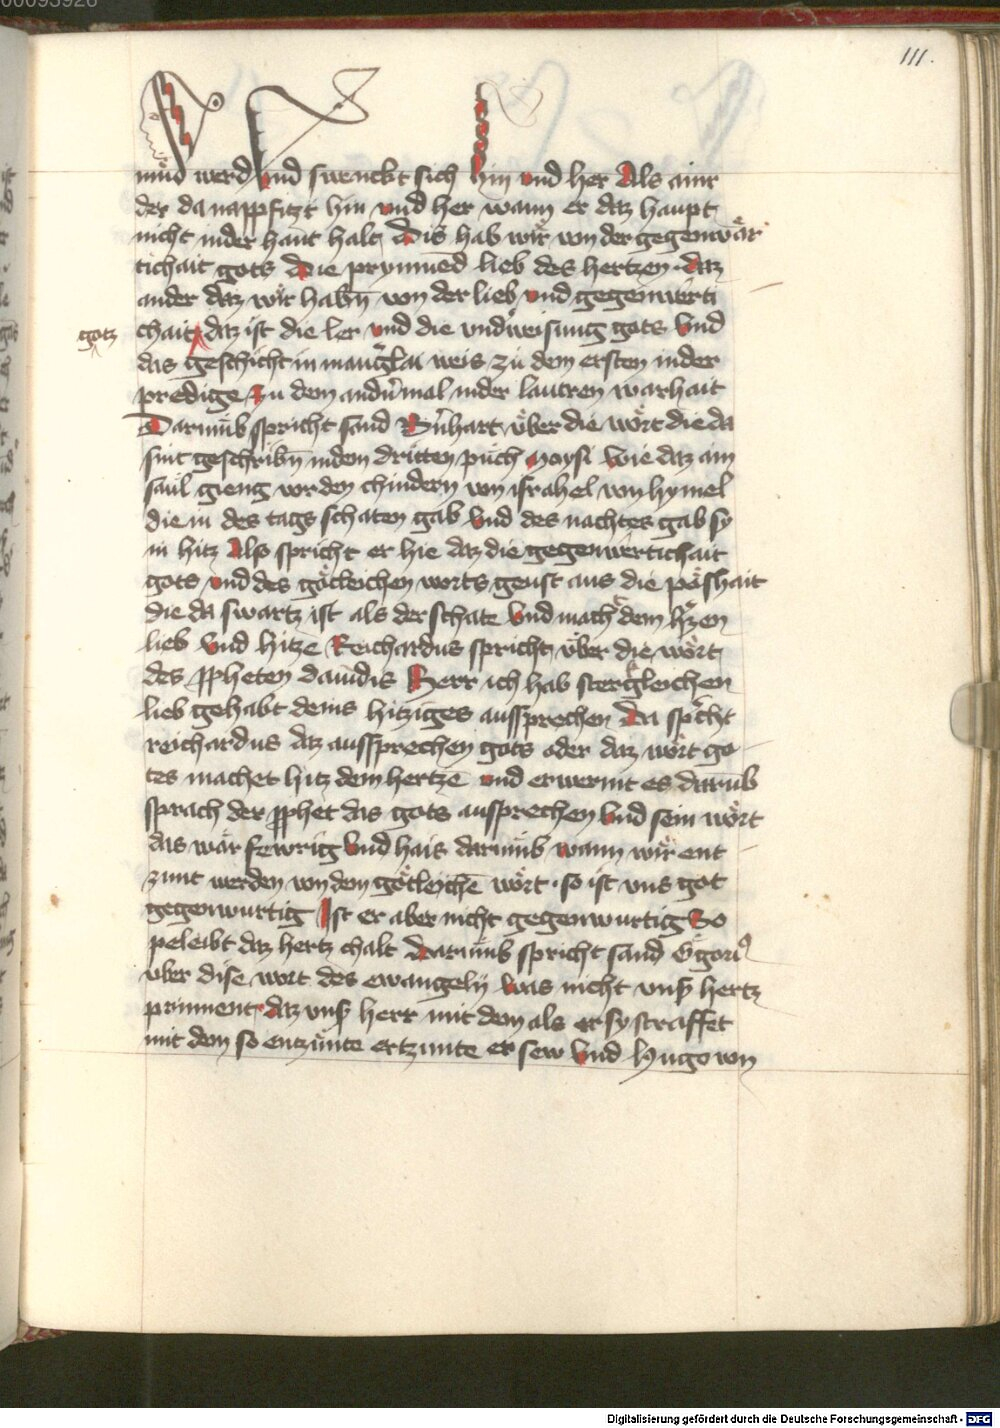 00093926
111.
müd werd vnd swenckt sich hin vnd her Als ainr
der da nappfitzt hin vnd her wann er daz haupt
nicht inder hant halt Dis hab wir von der gegenwär
tichait gots Die prynnēd lieb des hertzen daz
ander daz wir habn̄ von der lieb vnd gegenwerti
gotz
chait daz ist die ler vnd die vndweisung gots Vnd
das geschicht in mang͛lai weis zu dem ersten inder
predige Zu dem andn̄mal inder lautren warhait
Darumb spricht sand Bn̄hart vber die wort die da
sint geschribn̄ indem dritten puch Moysi Wie daz ain
saul gieng vor den chindern von israhel von hymel
die in des tags schaten gab Vnd des nachtes gab sy
in hitz Also spricht er hie daz die gegenwertichait
gots vnd des götleichen worts geust aus die poshait
die da swartz ist als der schate Vnd mach dem h͛tzen
lieb vnd hitze Reichardus spricht vber die wort
des ppheten dauidis Herr ich hab stergleichen
lieb gehabt deins hitziges aussprechen Da sp͛cht
reichardus daz aussprechen gots oder daz wort go
tes machet hitz dem hertzē vnd erwermt es darūb
sprach der pphet das gots aussprechen Vnd sein wort
das wär fewrig Vnd hais darumb wann wir ent
zunt werden von dem götleichē wort so ist vns got
gegenwurtig Ist er aber nicht gegenwurtig So
peleibt daz hertz chalt Darumb spricht sand G͛gori9
vber dise wort des ewangelij Was nicht vns͛ hertz
prinnent daz vns͛ herr mit dem als er sy straffet
mit dem so entzunte ertzunte er sew Vnd Hugo von
Digitalisierung gefördert durch die Deutsche Forschungsgemeinschaft - DFG